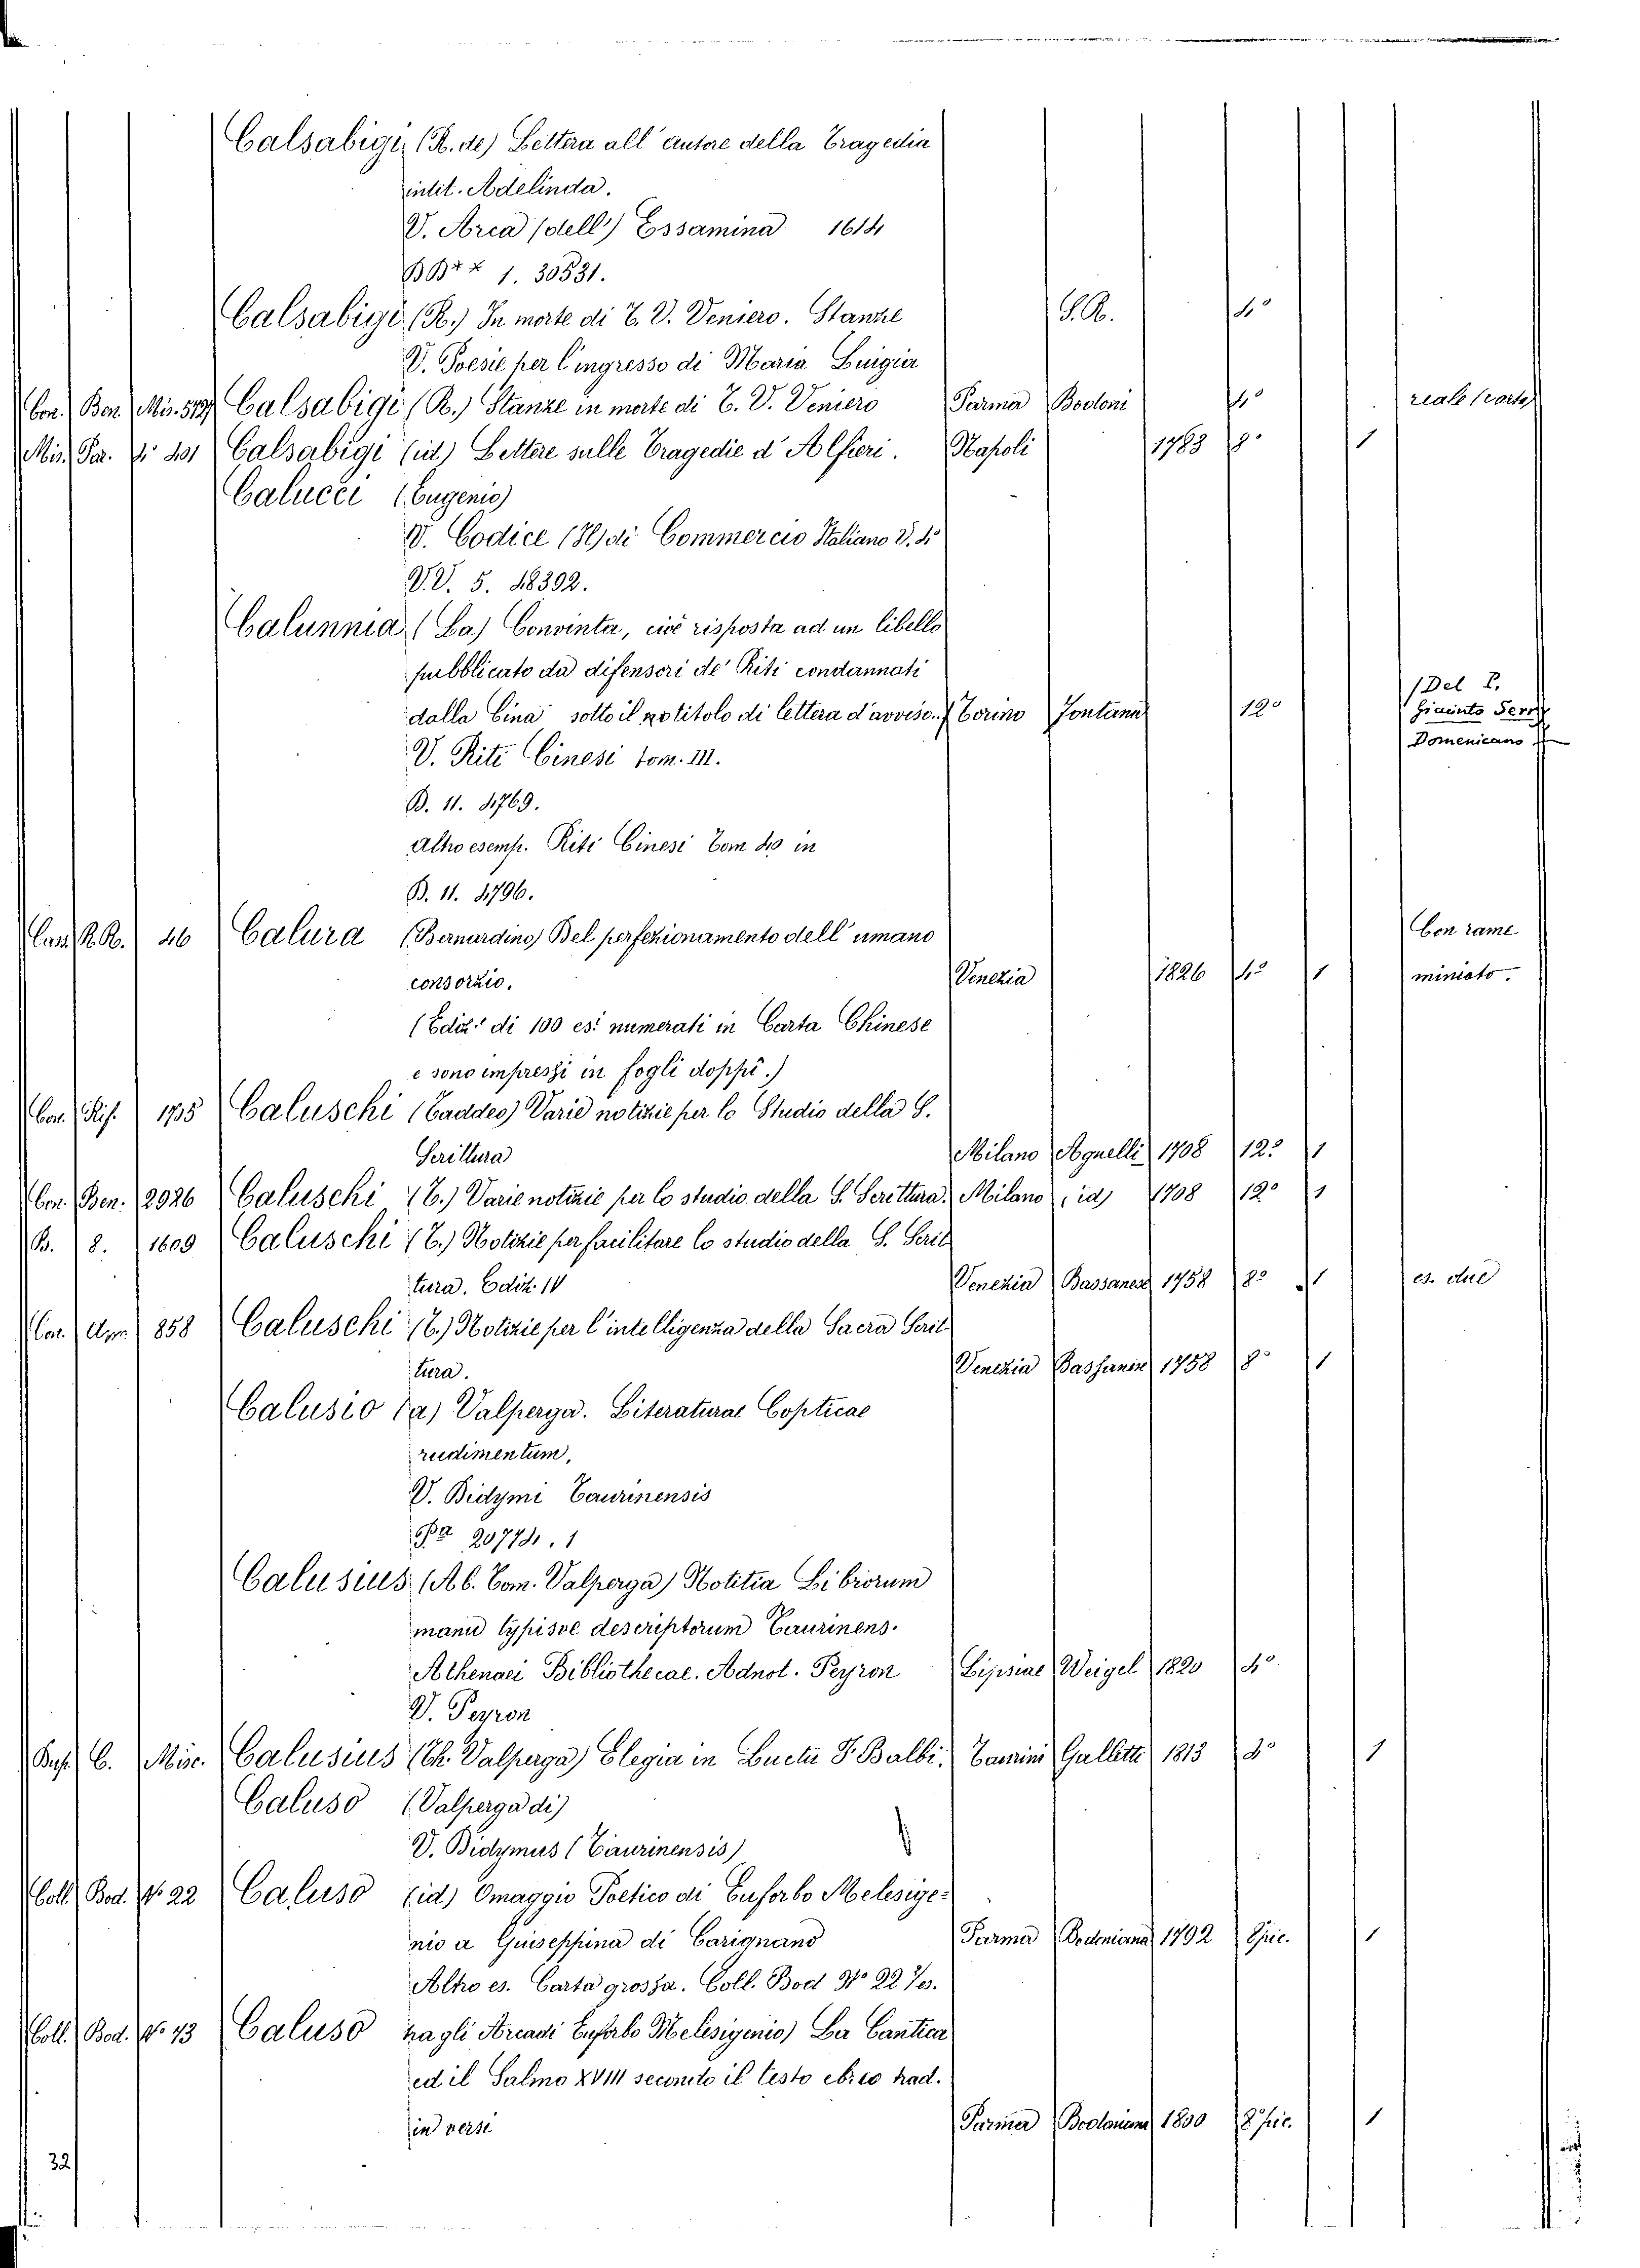 Calsabigi (R. de) Lettera all'autore della Tragedia
intit. Adelinda.
V. Arca (dell') Essamina 1614
BB** 1. 30531.
Calsabigi (R.) In morte di T. V. Veniero. Stanze S. A. 4°
V. Poesie per l'ingresso di Maria Luigia
Cor. Ben. Mis. 519 Calsabigi (R.) Stanze in morte di T. V. Veniero Parma Bodoni 4° reale (carta)
Mis. Par. 401 Calsabigi (id.) Lettere sulle Tragedie d'Alfieri. Napoli 1783 8° 1
Calucci (Eugenio)
V. Codice (Il) di Commercio Italiano V. 4°
V.V. 5. 48392.
Calunnia (La) Convinta, cioè risposta ad un libello
pubblicato da difensori de' Riti condannati
dalla Cina sotto il titolo di lettera d'avviso. Torino Fontana 12° (Del P. Giacinto Serry Domenicano)
V. Riti Cinesi tom. III.
B. 11. 4769.
Altro esemp. Riti Cinesi Tom 40 in
B. 11. 4796.
Cam. R. R. 46 Calura (Bernardino) Del perfezionamento dell'umano Con rame
consorzio. Venezia 1826 4° 1 miniato.
(Ediz.e di 100 es. numerati in Carta Chinese
e sono impressi in fogli doppi.)
Cor. Rif. 1735 Caluschi (Taddeo) Varie notizie per lo Studio della S.
Scrittura Milano Agnelli 1708 12° 1
Cor. Ben. 2926 Caluschi (T.) Varie notizie per lo studio della S. Scrittura. Milano (id) 1708 12° 1
B. 8. 1609 Caluschi (T.) Notizie per facilitare lo studio della S. Scrit
tura. Ediz. IV Venezia Bassanese 1758 8° 1 es. due
Cor. App. 858 Caluschi (T.) Notizie per l'intelligenza della Sacra Scrit
tura. Venezia Bassanese 1758 8° 1
Calusio (a) Valperga. Literaturae Copticae
rudimentum.
V. Didymi Taurinensis
Pa 20774. 1
Calusius (Ab. Tom. Valperga) Notitia Librorum
manu typisve descriptorum Taurinens.
Athenaei Bibliothecae. Adnot. Peyron Lipsiae Weigel 1820 4°
V. Peyron
C. Misc. Calusius (Th. Valperga) Elegia in Luctu P. Balbi. Taurini Galletti 1813 1
Caluso (Valperga di)
V. Didymus (Taurinensis)
Coll. Bod. N° 22 Caluso (id) Omaggio Poetico di Euforbo Melesige-
nio a Guiseppina di Carignano Parma Bodoniana 1792 8° pic. 1
Altro es. Carta grossa. Coll. Bod N° 22
Coll. Bod. N° 13 Caluso tra gli Arcadi Euforbo Melesigenio) La Cantica
ed il Salmo XVIII secondo il testo ebreo trad.
in versi Parma Bodoniana 1800 8° pic. 1
32